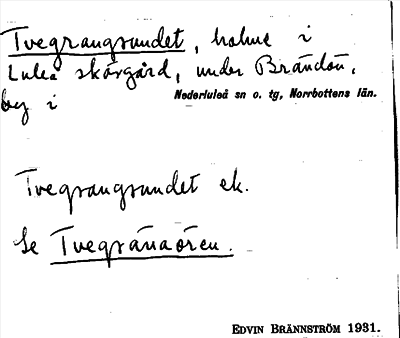 Tvegrangsundet, holme i
Luleå skärgård, under Brändön,
by i
Nederluleå sn o. tg, Norrbottens län.
Tvegrangsundet ek.
Se Tvegränaören.
EDVIN BRÄNNSTRÖM 1931.